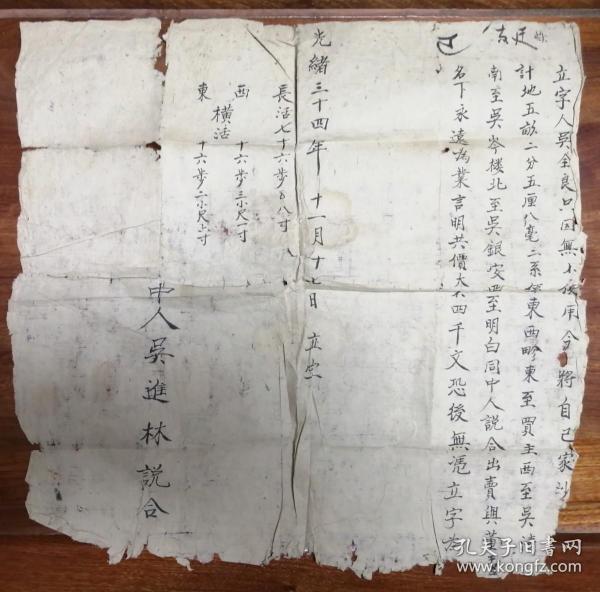 立字人吳全良只因無 使用今將自己家
計地五畝二分五厘八毫二系 東西畛東至買主西至吳
南至吳岑楼北至吳銀安四至明白同中人説合出賣與董
名下永遠為業言明共價大 四千文恐後無憑立字為
光緒三十四年十一月十七日 立字
長活七十六步 八寸
西 十六步三小尺一寸
橫活
東 十六步二小尺上寸
中人吳進林説合
孔夫子旧书网
www.kongfz.com